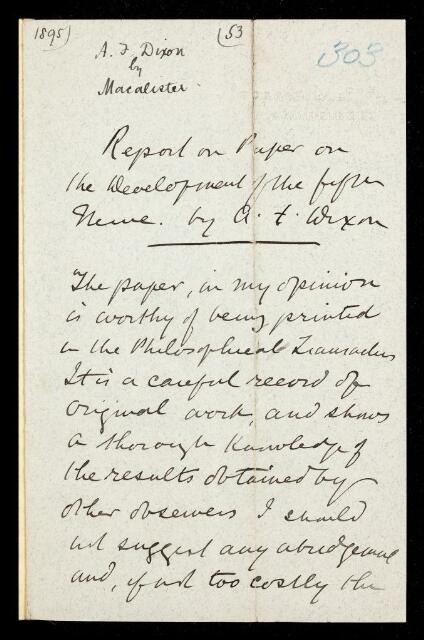 1895)
(53
303
A. F. Dixon
by
Macalister
Report on Paper on
the Development of the fifth
Nerve. by A. F. Dixon
The paper, in my opinion
is worthy of being printed
in the Philosophical Transactions
It is a careful record of
original work, and shows
a thorough knowledge of
the results obtained by
other observers I should
not suggest any abridgement
and, if not too costly the